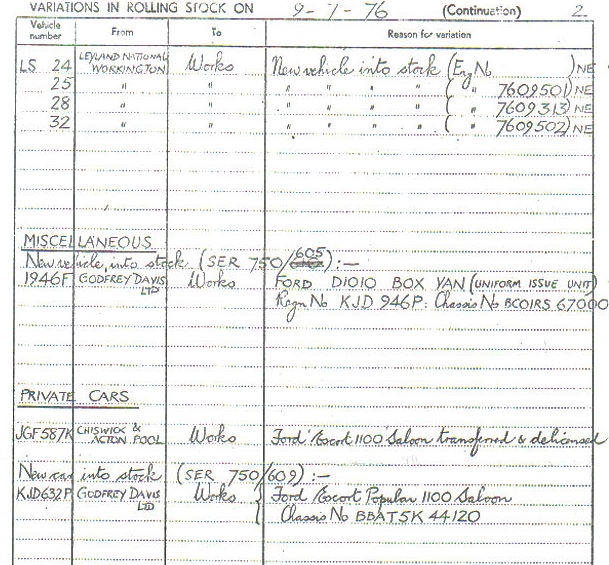 VARIATIONS IN ROLLING STOCK ON 9-7-76 (Continuation) 2.
Vehicle number From To Reason for variation
LS 24 LEYLAND NATIONAL WORKINGTON Works New vehicle into stock (Eng No )NE
25 " " " " " " ( " 7609501)NE
28 " " " " " " ( " 7609313)NE
32 " " " " " " ( " 7609502)NE
MISCELLANEOUS
New vehicle into stock (SER 750/605):-
1946F GODFREY DAVIS LTD Works FORD D1010 BOX VAN (UNIFORM ISSUE UNIT)
Regn No KJD 946P: Chassis No BCOIRS 67000
PRIVATE CARS
JGF587K CHISWICK & ACTON POOL Works Ford Escort 1100 Saloon transferred & delicensed
New car into stock (SER 750/609):-
KJD632P GODFREY DAVIS LTD Works Ford Escort Popular 1100 Saloon
Chassis No BBAT5K 44120